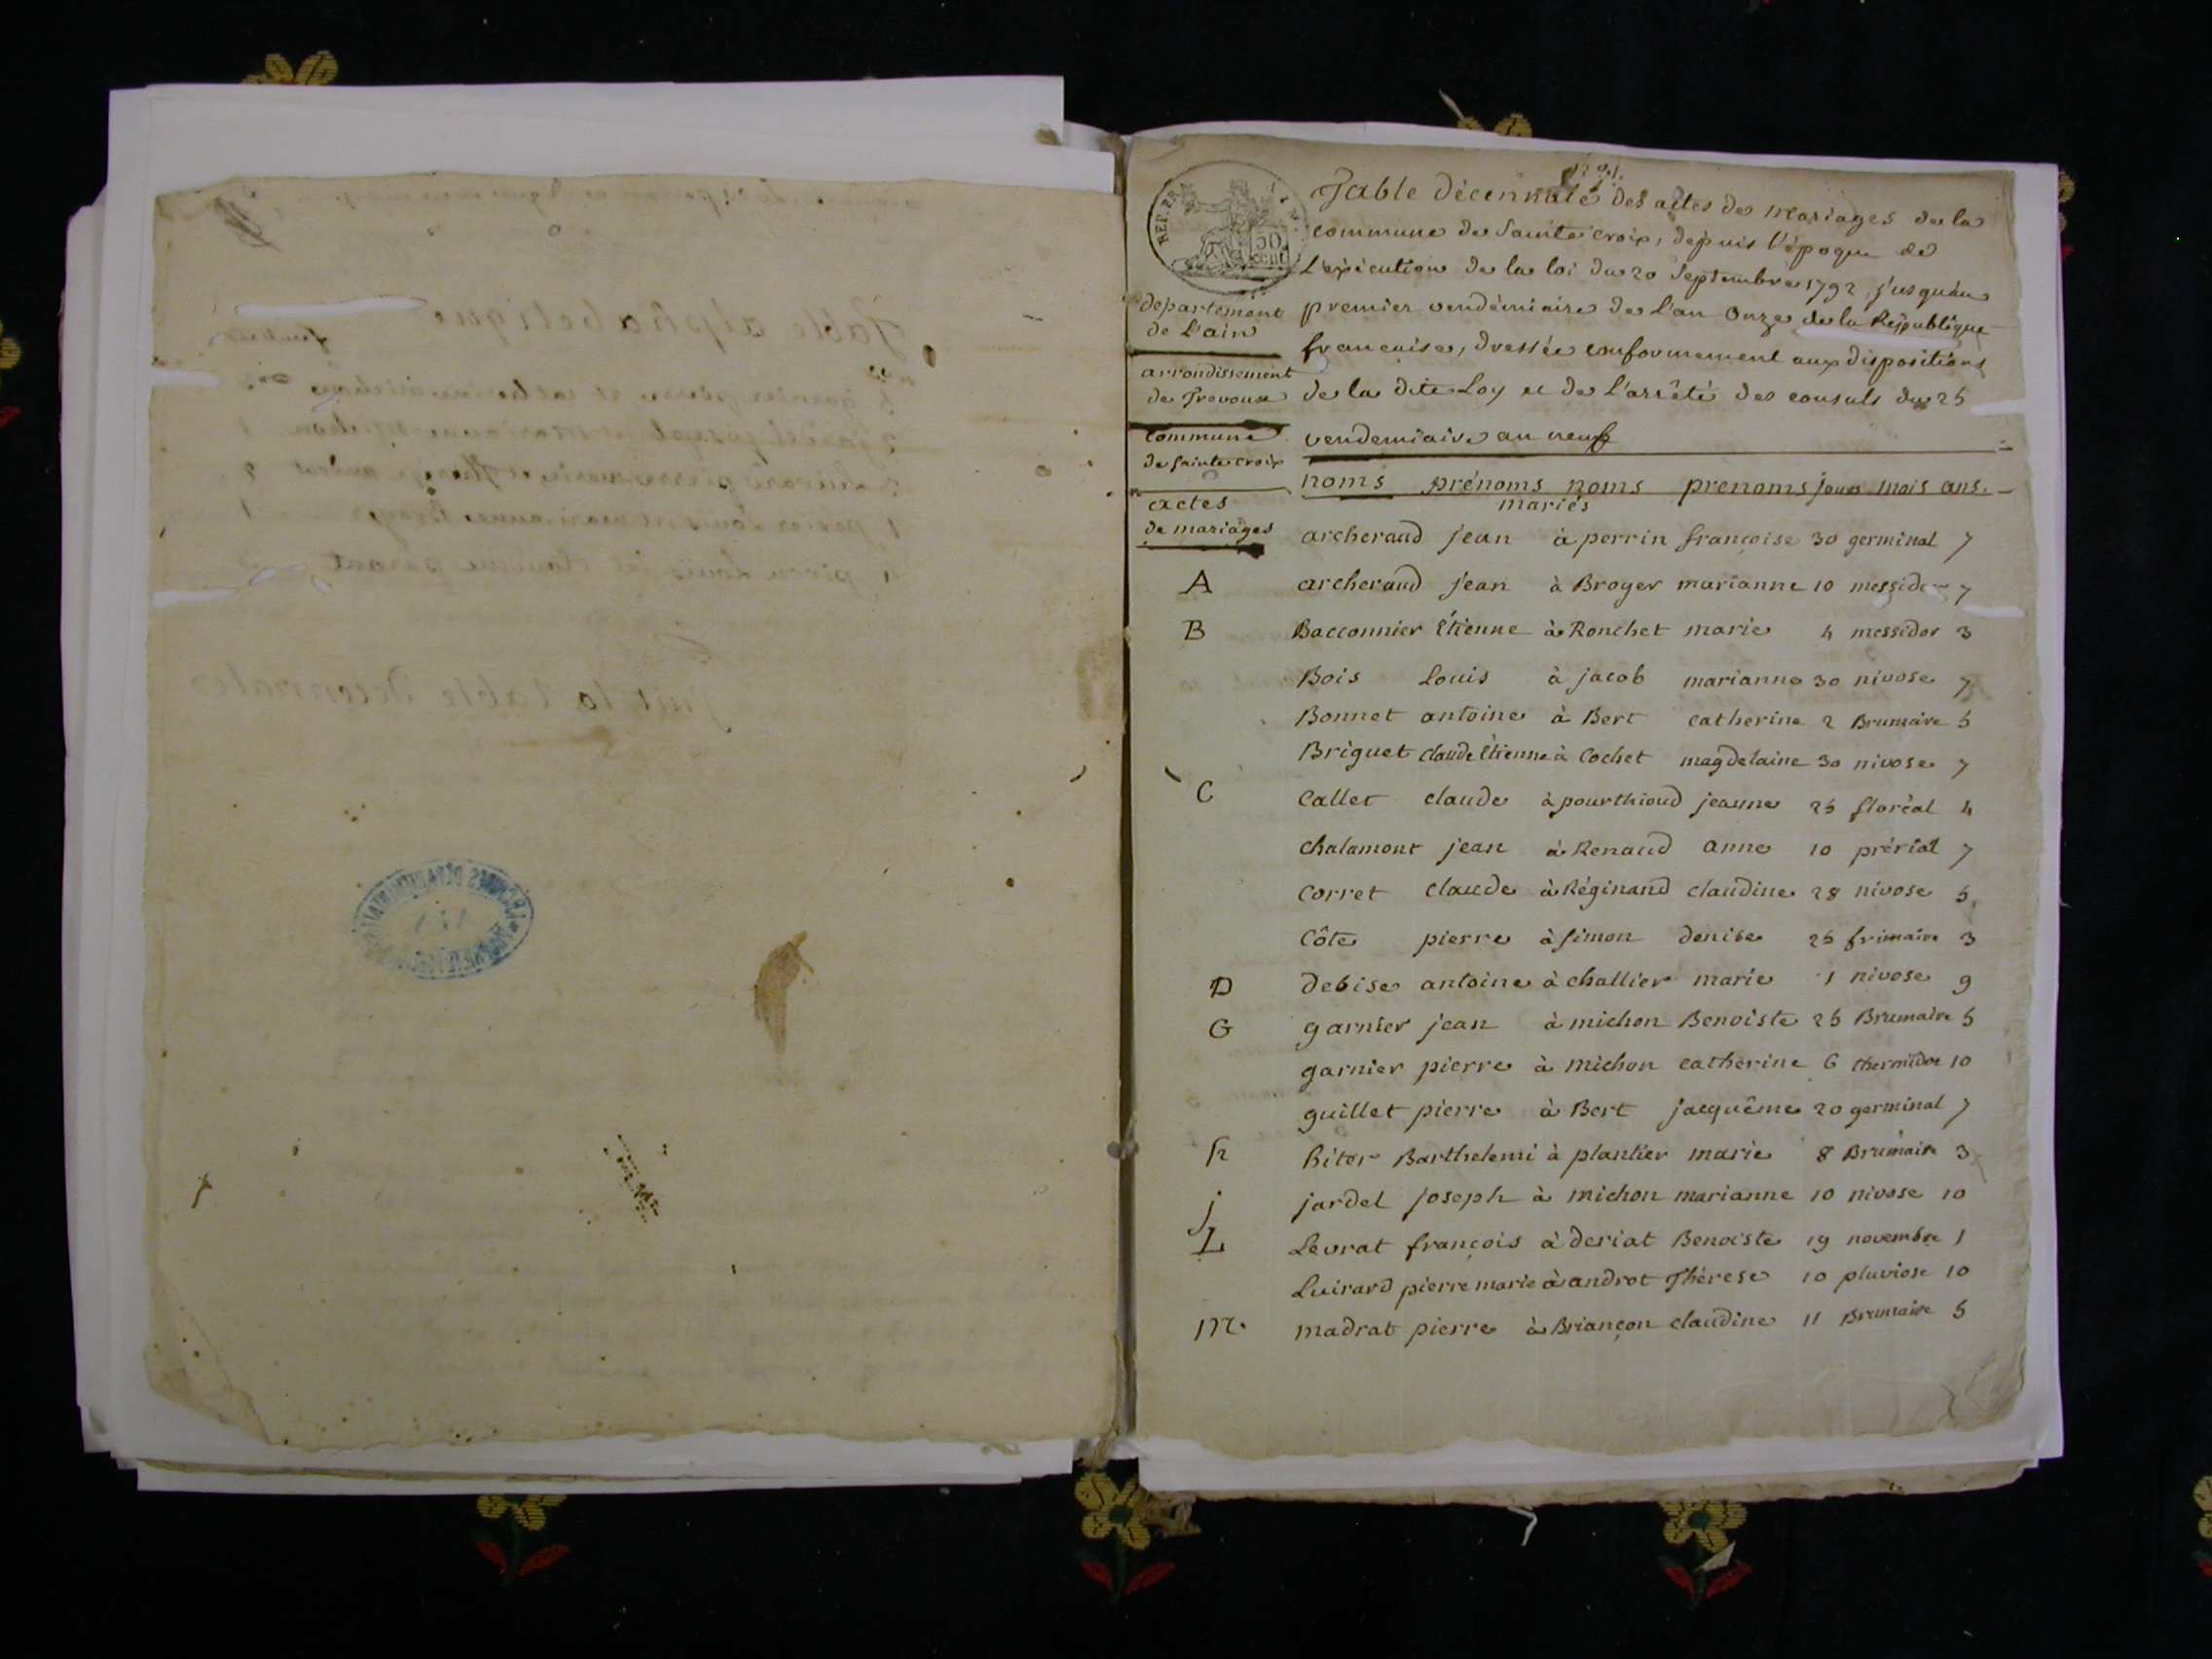 Table décennale des actes de mariages de la
commune de Sainte croix, depuis l'époque de
L'exécution de la loi du 20 Septembre 1792 jusquau
premier vendémiaire de l'an Onze de la République
francaise, dressée conformement aux dispositions
de la dite Loy et de l'arrêté des consuls du 25
vendemiaire an neuf
REP. FRA
50
cent
département
de L'ain
arrondissement
de Trevoux
commune
de Sainte croix
actes
de mariages
noms prénoms noms prenoms jours mois ans.
mariés
archeraud jean à perrin françoise 30 germinal 7
A archeraud jean à Broyer marianne 10 messidor 7
B Bacconnier Etienne à Ronchet marie 4 messidor 3
Bois Louis à jacob marianne 30 nivose 7
Bonnet antoine à Bert catherine 2 Brumaire 5
Briguet claude Etienne à Cochet magdelaine 30 nivose 7
C Callet claude à pourthioud jeanne 25 floréal 4
chalamont jean à Renaud anne 10 prérial 7
Corret claude à Réginand claudine 28 nivose 5
Côte pierre à Simon denise 25 frimaire 3
D debise antoine à challier marie 1 nivose 9
G garnier jean à michon Benoiste 25 Brumaire 5
garnier pierre à michon catherine 6 thermidor 10
guillet pierre à Bert jacquême 20 germinal 7
h hiter Barthelemi à plantier marie 8 Brumaire 3
j jardel joseph à michon marianne 10 nivose 10
L Levrat françois à deriat Benoiste 19 novembre 1
Luirard pierre marie à androt Thérese 10 pluviose 10
M. madrat pierre à Briançon claudine 11 Brumaire 5